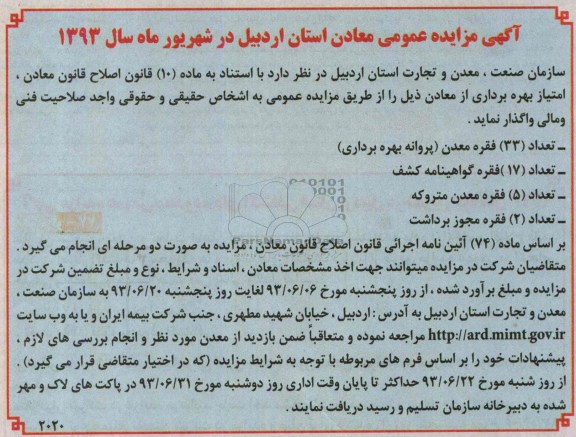 آگهی مزایده عمومی معادن استان اردبیل در شهریور ماه سال ۱۳۹۳
سازمان صنعت ، معدن و تجارت استان اردبیل در نظر دارد با استناد به ماده (۱۰) قانون اصلاح قانون معادن ،
امتیاز بهره برداری از معادن ذیل را از طریق مزایده عمومی به اشخاص حقیقی و حقوقی واجد صلاحیت فنی
ومالی واگذار نماید .
ـ تعداد (۳۳) فقره معدن (پروانه بهره برداری)
ـ تعداد (۱۷)فقره گواهینامه کشف
ـ تعداد (۵) فقره معدن متروکه
ـ تعداد (۲) فقره مجوز برداشت
بر اساس ماده (۷۴) آئین نامه اجرائی قانون اصلاح قانون معادن ، مزایده به صورت دو مرحله ای انجام می گیرد .
متقاضیان شرکت در مزایده میتوانند جهت اخذ مشخصات معادن ، اسناد و شرایط ، نوع و مبلغ تضمین شرکت در
مزایده و مبلغ برآورد شده ، از روز پنجشنبه مورخ ۹۳/۰۶/۰۶ لغایت روز پنجشنبه ۹۳/۰۶/۲۰ به سازمان صنعت ،
معدن و تجارت استان اردبیل به آدرس : اردبیل ، خیابان شهید مطهری ، جنب شرکت بیمه ایران و یا به وب سایت
http://ard.mimt.gov.ir مراجعه نموده و متعاقباً ضمن بازدید از معدن مورد نظر و انجام بررسی های لازم ،
پیشنهادات خود را بر اساس فرم های مربوطه با توجه به شرایط مزایده (که در اختیار متقاضی قرار می گیرد) .
از روز شنبه مورخ ۹۳/۰۶/۲۲ حداکثر تا پایان وقت اداری روز دوشنبه مورخ ۹۳/۰۶/۳۱ در پاکت های لاک و مهر
شده به دبیرخانه سازمان تسلیم و رسید دریافت نمایند .
۲۰۲۰